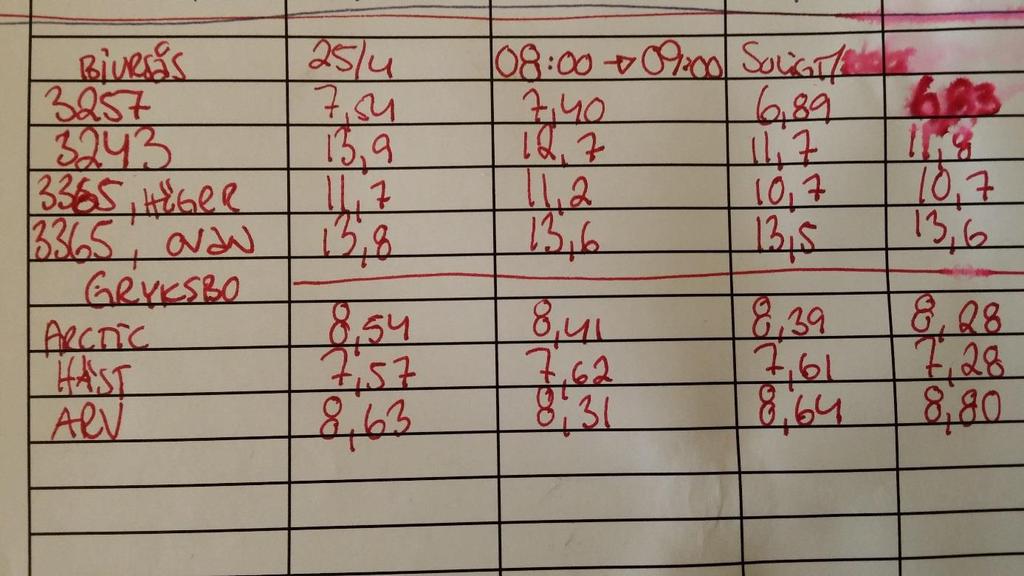 BJURSÅS 25/4 08:00 → 09:00 SOLIGT/
3257 7,54 7,40 6,89
3243 13,9 12,7 11,7 11,8
3365, HÖGER 11,7 11,2 10,7 10,7
3365, OVAN 13,8 13,6 13,5 13,6
GRYKSBO
ARCTIC 8,54 8,41 8,39 8,28
HÄST 7,57 7,62 7,61 7,28
ARV 8,63 8,31 8,64 8,80